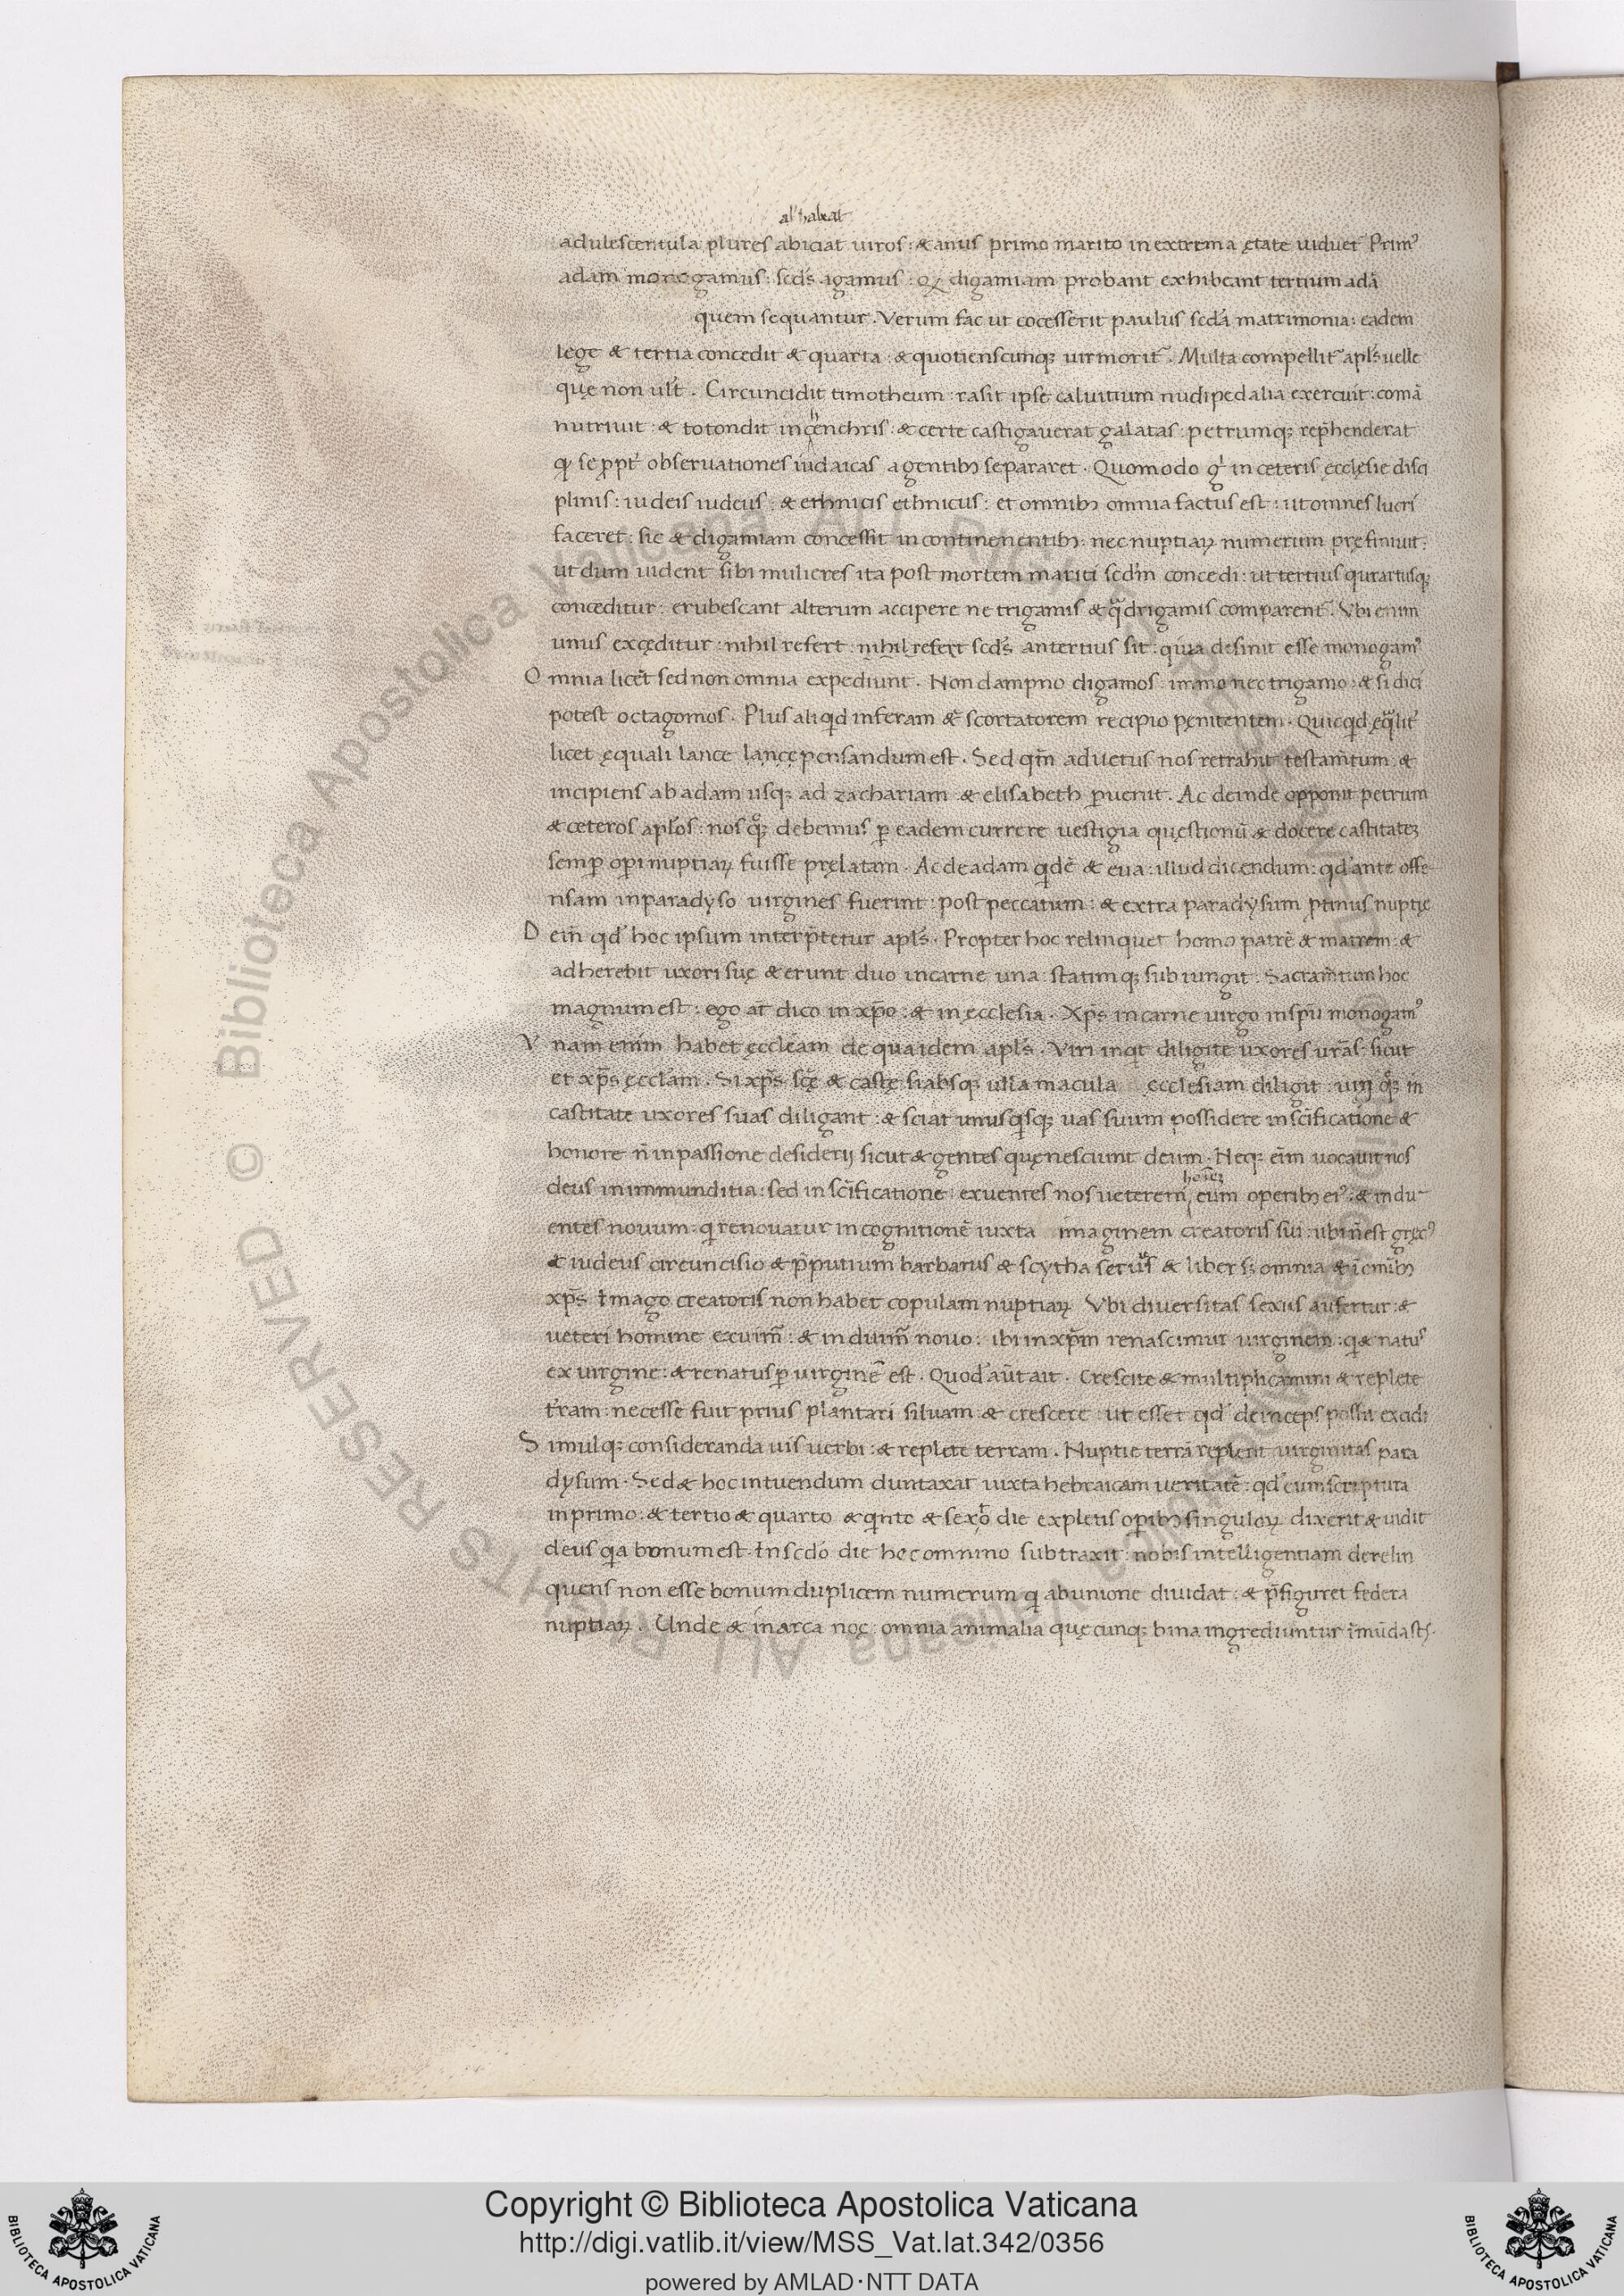 al' habeat
adulescentula plures abiciat uiros : & anus primo marito in extrema ętate uiduet᷑ Primꝰ
adam monogamus : scd̓s agamus : Qꝫ digamiam probant exhibeant tertium adā
quem sequantur . Verum fac ut cōcesserit paulus scd̓a matrimonia : eadem
lege & tertia concedit & quarta : & quotienscunqꝫ uir morit᷑ . Multa compellit᷑ apl̓s uelle
quę non uult . Circuncidit timotheum : rasit ipse caluitium nudipedalia exercuit : comā
nutriuit : & totondit in cenchris : & certe castigauerat galatas : petrumqꝫ rep̄henderat
qđ se ꝓpt̓ obseruationes iudaicas a gentibꝫ separaret . Quomodo gͥ in ceteris ęcclęsie disci
plinis : iudeis iudeus : & ethnicis ethnicus : et omnibꝫ omnia factus est : ut omnes lucri
faceret : sic & digamiam concessit incontinentibꝫ : nec nuptiaꝝ numerum pręfiniuit :
ut dum uident sibi mulieres ita post mortem mariti scd̓m concedi : ut tertius qurartusqꝫ
conceditur : erubescant alterum accipere ne trigamis & qͣdrigamis comparent᷑ . Vbi enim
unus exceditur : nihil refert : nihil refert scd̓s an tertius sit : quia desinit esse monogamꝰ
Omnia licet sed non omnia expediunt . Non dampno digamos : immo nec trigamo : & si dici
potest octagomos . Plus aliqͥd inferam & scortatorem recipio pęnitentem . Quicqͥd ęqͣlit᷑
licet ęquali lance lance pensandum est . Sed qm̄ ad uetus nos retrahit testam̄tum : &
incipiens ab adam usqꝫ ad zachariam & elisabeth ꝑuenit . Ac deinde opponit petrum
& ceteros apl̓os : nos qͦqꝫ debemus ꝑ eadem currere uestigia questionū & docere castitateꝫ
semꝑ oꝑi nuptiaꝝ fuisse prelatam . Ac de adam qͥdē & eua : illud dicendum : qd̓ ante offe
nsam in paradyso uirgines fuerint : post peccatum : & extra paradysum ꝓtinus nuptię
Dein̄ qd̓ hoc ipsum interp̄tetur apl̓s . Propter hoc relinquet homo patrē & matrem : &
adherebit uxori suę & erunt duo in carne una : statimqꝫ subiungit . Sacram̄tum hoc
magnum est : ego aūt dico in xp̄o : & in ęcclesia . Xp̄s in carne uirgo in sp̄u monogamꝰ
Vnam enim habet ecclēam de qua idem apl̓s . Viri inqͥt diligite uxores ur̄as : sicut
et xp̄s ęcclam . Si xp̄s sc̄ę & castę si absqꝫ ulla macula ecclesiam diligit : uiri qͦqꝫ in
castitate uxores suas diligant : & sciat unusqͥsqꝫ uas suum possidere in sc̄ificatione &
honore n̄ in passione desiderij sicut & gentes quę nesciunt deum . Neqꝫ eīm uocauit nos
deus in immunditia : sed in sc̄ificatione : exuentes nos ueterem hoīeꝫ cum operibꝫ eiꝰ : & indu
entes nouum : qͥ renouatur in cognitionē iuxta imaginem creatoris sui : ubi n̄ est gręcꝰ
& iudeus circuncisio & p̄putium barbarus & scytha seruus & liber sꝫ omnia & ī omībꝫ
xp̄s Imago creatoris non habet copulam nuptiaꝝ Vbi diuersitas sexus aufertur : &
ueteri homine exuim᷑ : & induim᷑ nouo : ibi in xp̄m renascimur uirginem : qͥ & natuˢ
ex uirgine : & renatus ꝑ uirginē est . Quod aūt ait . Crescite & multiplicamini & replete
t̓ram : necesse fuit prius plantari siluam & crescere : ut esset qd̓ deinceps possit excidi
Simulqꝫ consideranda uis uerbi : & replete terram . Nuptie terrā replent uirginitas para
dysum . Sed & hoc intuendum duntaxat iuxta hebraicam ueritatē : qd̓ cum scriptura
in primo : & tertio & quarto & qͥnto & sexto die expletis oꝑibꝫ singuloꝝ dixerit & uidit
deus qͥa bonum est . In scd̓o die hoc omnino subtraxit : nobis intelligentiam derelin
quens non esse bonum duplicem numerum qͥ ab unione diuidat : & p̄figuret federa
nuptiaꝝ . Unde & in arca noę : omnia animalia quęcunqꝫ bina ingrediuntur īmūda st̄ .
© Biblioteca Apostolica Vaticana ALL RIGHTS RESERVED
Copyright © Biblioteca Apostolica Vaticana
http://digi.vatlib.it/view/MSS_Vat.lat.342/0356
powered by AMLAD·NTT DATA
BIBLIOTECA APOSTOLICA VATICANA
BIBLIOTECA APOSTOLICA VATICANA